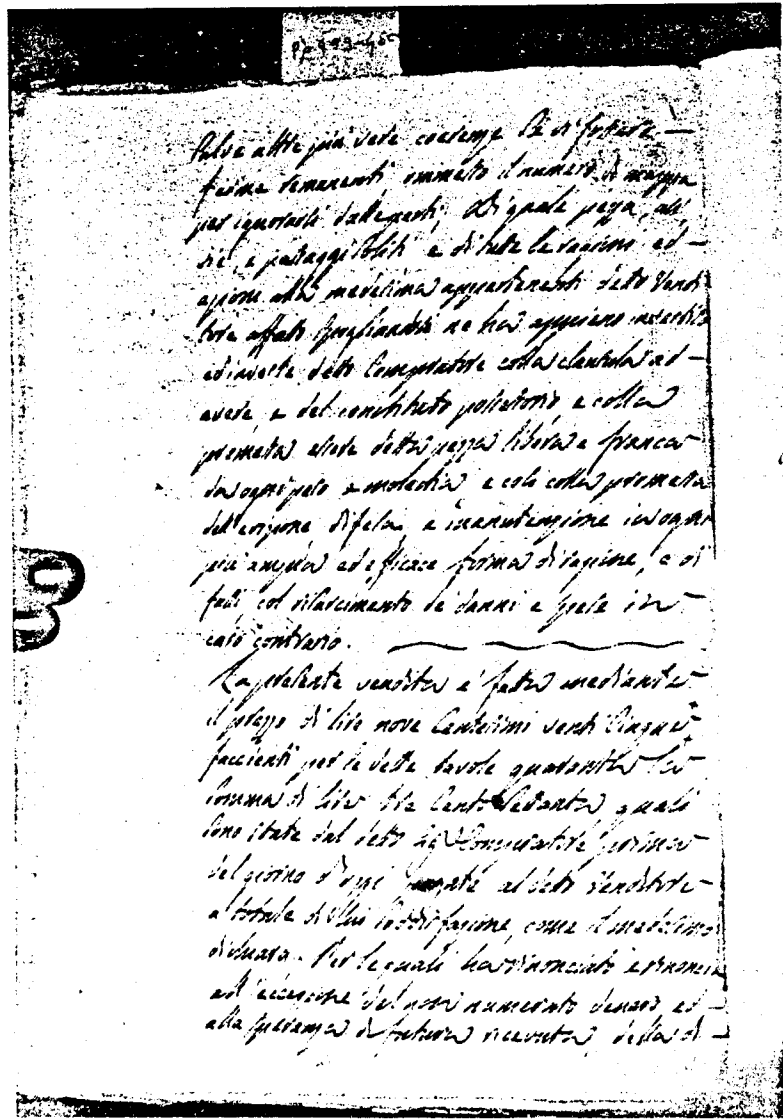 Salve altre più vere coerenze Se vi fossero —
ferme remanenti ommesso il numero di mappa
per ignorarsi dalle parti, Di quale pezza, 
e passaggi soliti e di tutte le ragioni ed —
azioni alla medesima appartenenti detto Vendi
tore affatto spogliandosi ne ha appieno investito
ed investe detto Compratore colla clausola ad —
avere e del constituto possessorio e colla
promessa essere detta pezza libera e franca
da ogni peso e molestia e così colla promessa
dell'evizione difesa e manutenzione in ogni
più ampia ed efficace forma di ragione, e di
fatti col rifarcimento de' danni e spese in
caso contrario.
La presente vendita è fatta mediante
il prezzo di lire nove Centesimi venti Cinque
faccienti per le dette tavole quaranta la
Somma di lire tre Cento Settanta quali
Sono state dal detto Sig.r Compratore prima
del giorno d'oggi pagate al detto Venditore
a totale di lui Soddisfazione, come il medesimo
dichiara. Per le quali ha rinonciato e rinoncia
all'eccezione del non numerato denaro ed —
alla speranza di futura ricevuta, della di —